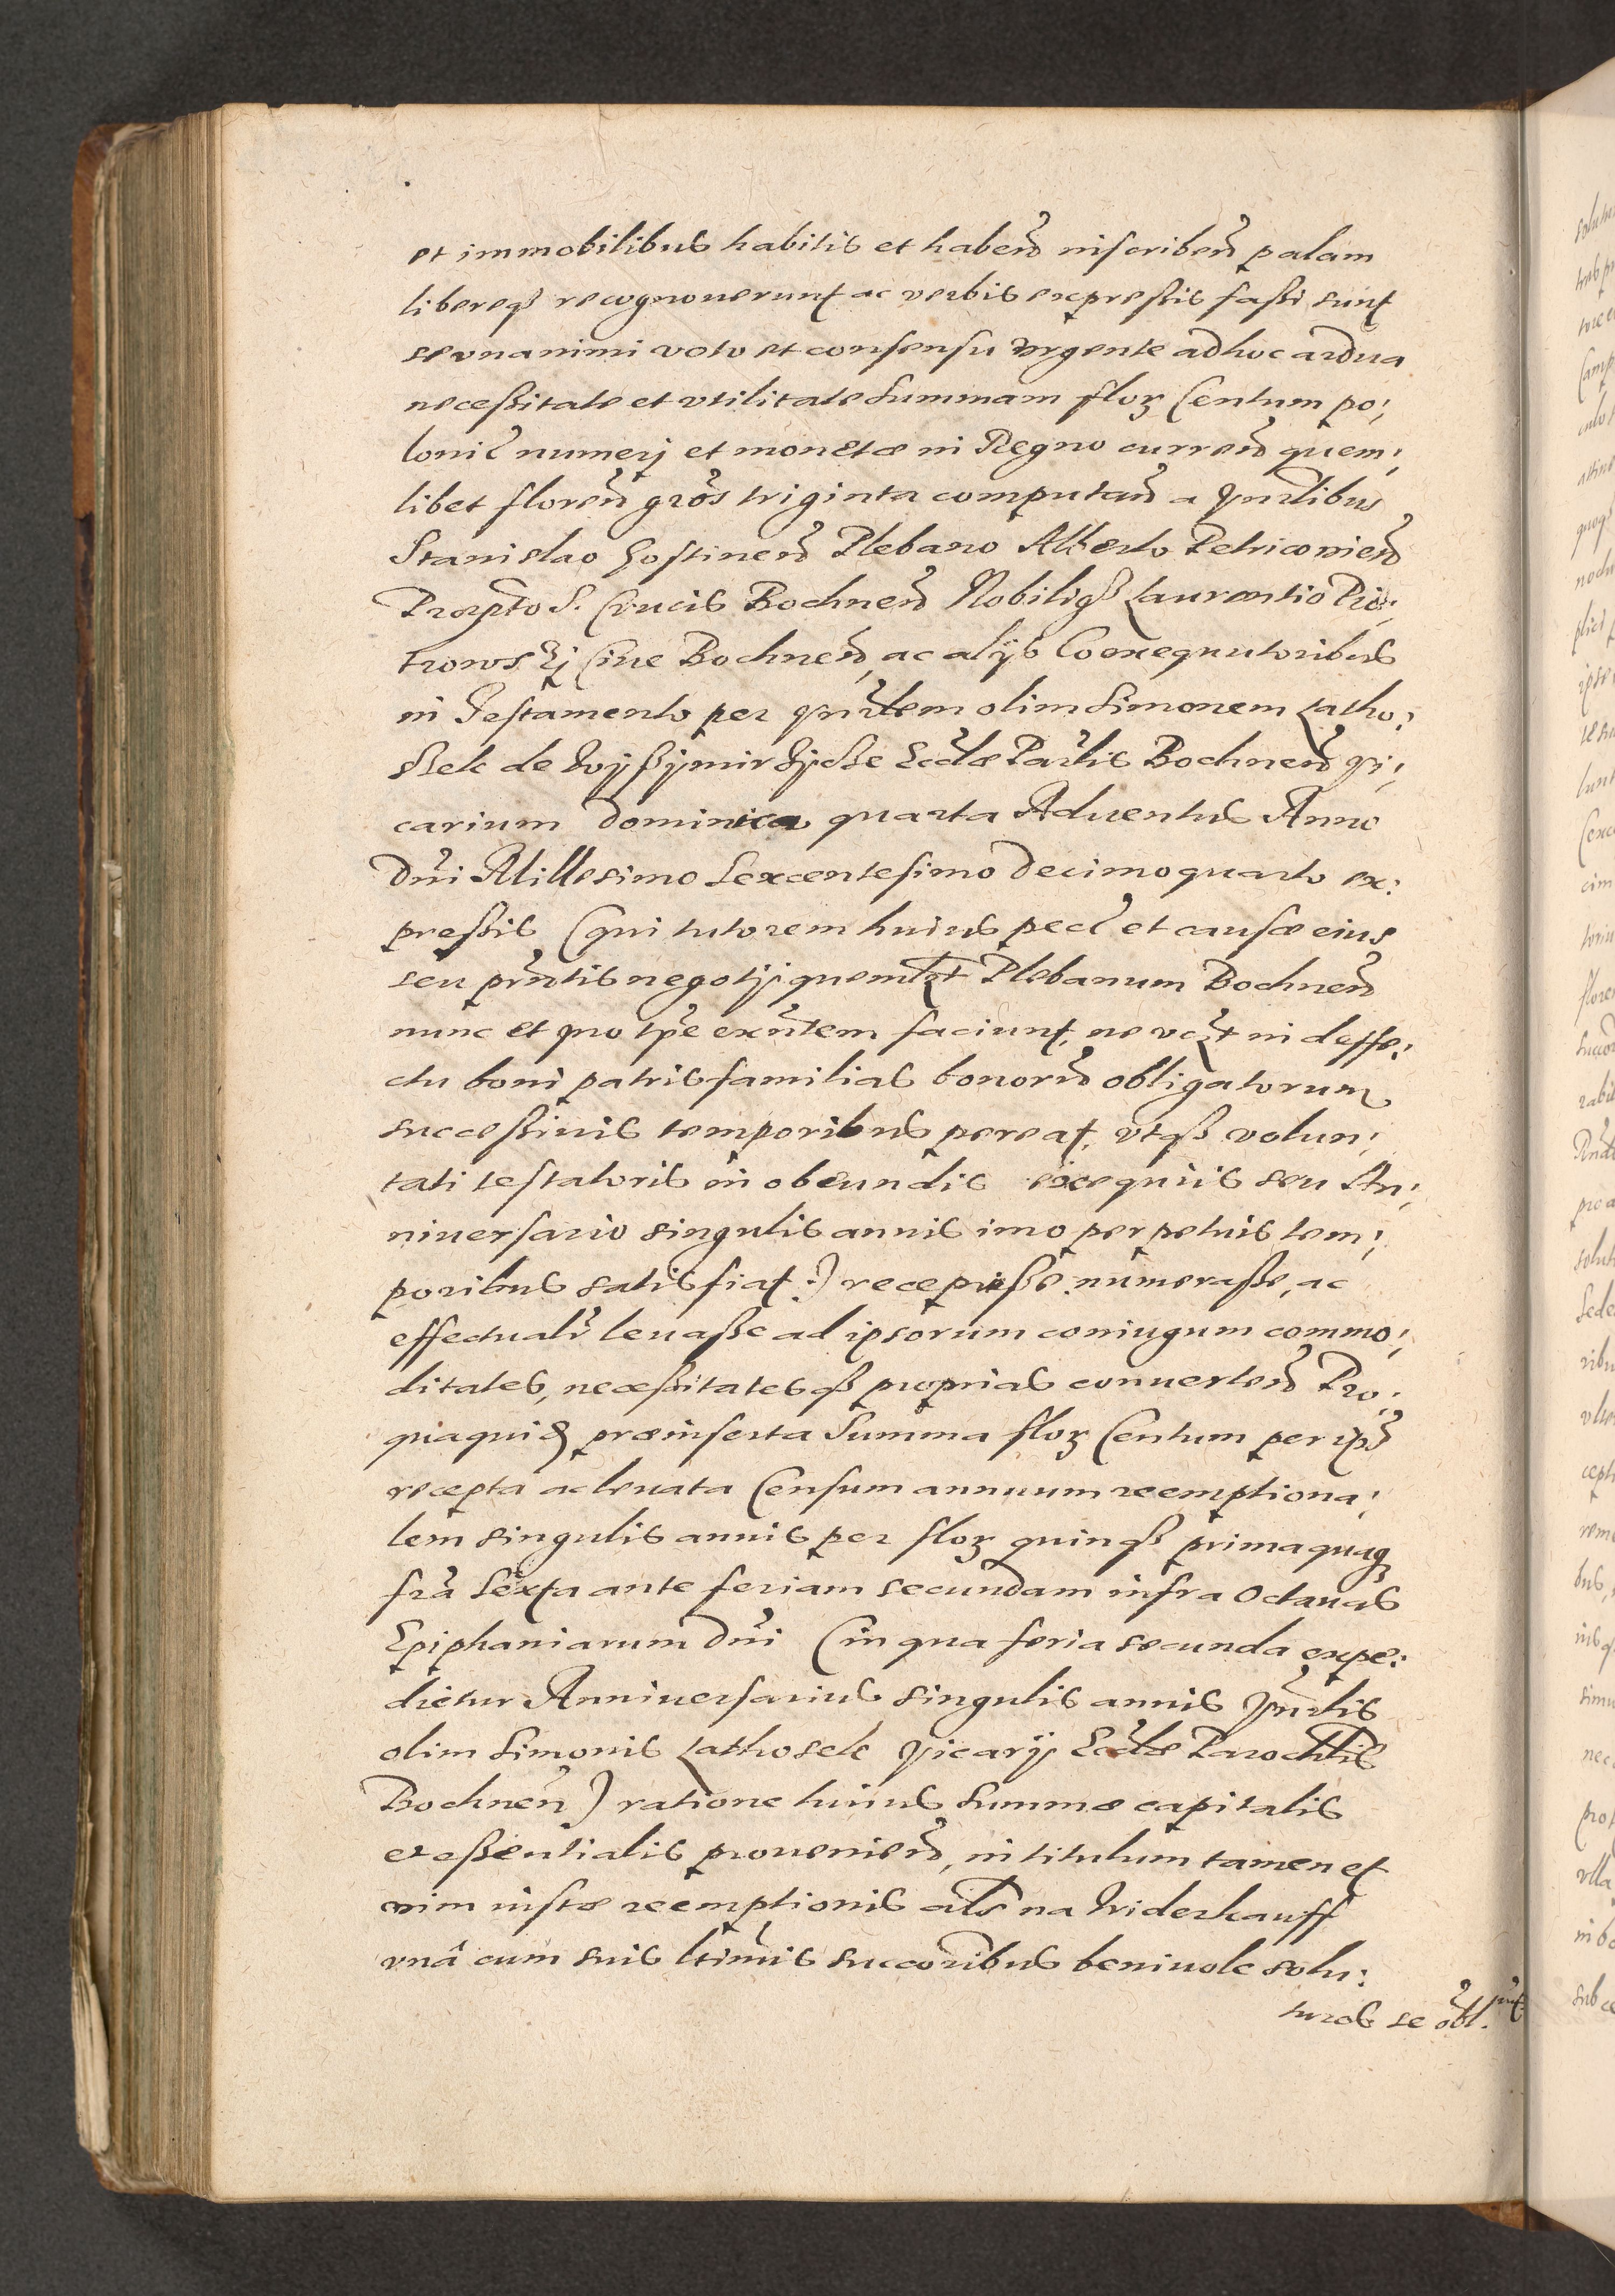 et immobilibus habitis et habeñ inscribeñ palam
libereqȝ recognouerunt ac verbis expreßis faßi sunt
se vnanimi voto et consensu vrgente adhoc ardua
neceßitate et vtilitate summam floꝝ Centum po;
lonic̃ numerj et monetæ in Regno curreñ quem;
libet floreñ gros̃ triginta computan̄ a Vnr̃libus
Stanislao Gostineñ Plebano Alberto Petricouieñ
Præpto S. Crucis Bochneñ Nobiliqȝ Laurentio Pio;
trowskj Ciue Bochneñ, ac alijs Coexequutoribus
in Testamento per Vnr̃lem olim Simonem Latho;
ßek de Wyßymirzycze Eccl̃æ Par̃lis Bochneñ Vi;
carium Dominica quarta Aduentus Anno
Dñi Millesimo Sexcentesimo Decimoquarto ex:
preßis (qui tutorem huius pec̃ et causæ eius
seu prñtis negotij quemlꝫt Plebanum Bochneñ
nunc et pro tp̃e exñtem faciunt, ne vcꝫt in deffe;
ctu boni patrisfamilias bonorũ obligatorum
succeßiuis temporibus pereat, vtqȝ volun;
tati testatoris in obeundis exequiis seu An;
niuersario singulis annis imo perpetuis tem;
poribus satisfiat:) recepiße numeraße, ac
effectualr̃ leuaße ad ipsorum coniugum commo;
ditates, neceßitatesqȝ proprias conuerteñ Pro;
quaquiꝫ præinserta Summa floꝝ Centum per ip̃s
recepta ac leuata Censum annuum reemptiona;
lem singulis annis per floꝝ quinqȝ prima quaqȝ
fr̃a Sexta ante feriam secundam infra Octauas
Epiphaniarum Dñi (in qua feria secunda expe:
dietur Anniuersarius singulis annis Vnr̃lis
olim Simonis Lathosek Vicarij Eccl̃æ Parochlis
Bochneñ) ratione huius summæ capitalis
et eßentialis prouenieñ, in titulum tamen et
vim iustæ reemptionis als̃ na Widerkauff
vnâ cum suis ltim̃is succoribus beniuole solu:
turos se obl. sunt